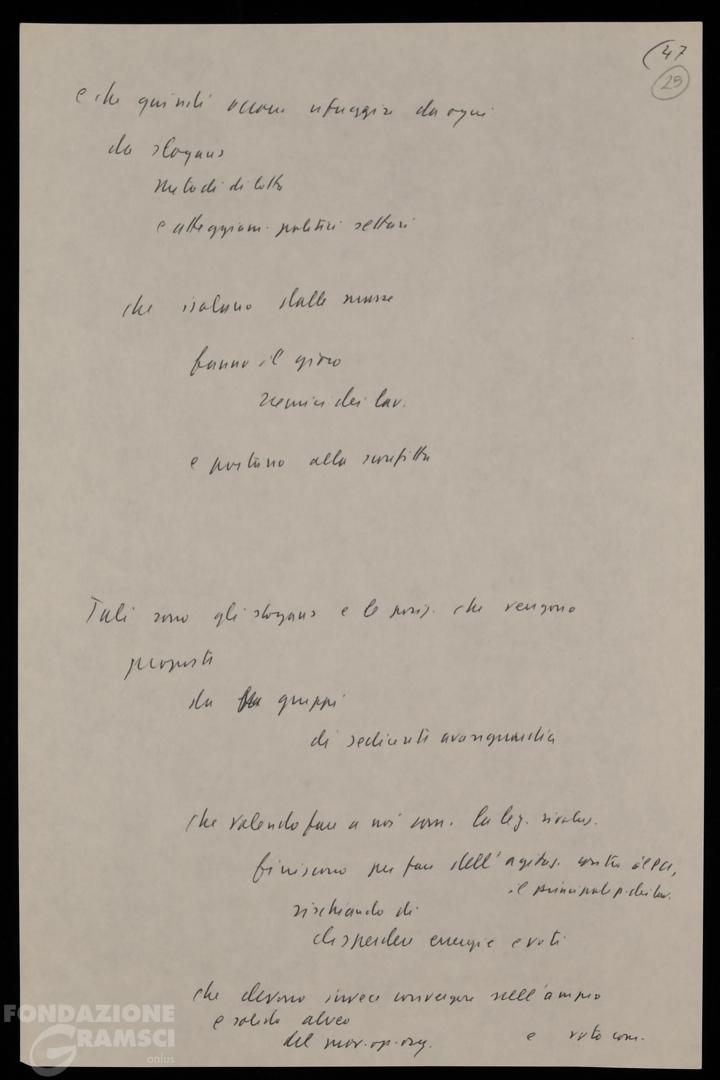 (47
29
e che quindi occorre rifuggire da ogni
da slogans
metodi di lotta
e atteggiam. politici settari
che isolano dalle masse
fanno il gioco
nemici dei lav.
e portano alla sconfitta
Tali sono gli slogans e le posiz. che vengono
proposti
da gruppi
di sedicenti avanguardia
che volendo fare a noi com. la lez. rivoluz.
finiscono per fare dell'agitaz. contro il PCI,
il principale p. dei lav.
rischiando di
disperdere energie e voti
che devono invece convergere nell'ampio
e solido alveo
del mov. op. org. e voto com.
FONDAZIONE
GRAMSCI
onlus